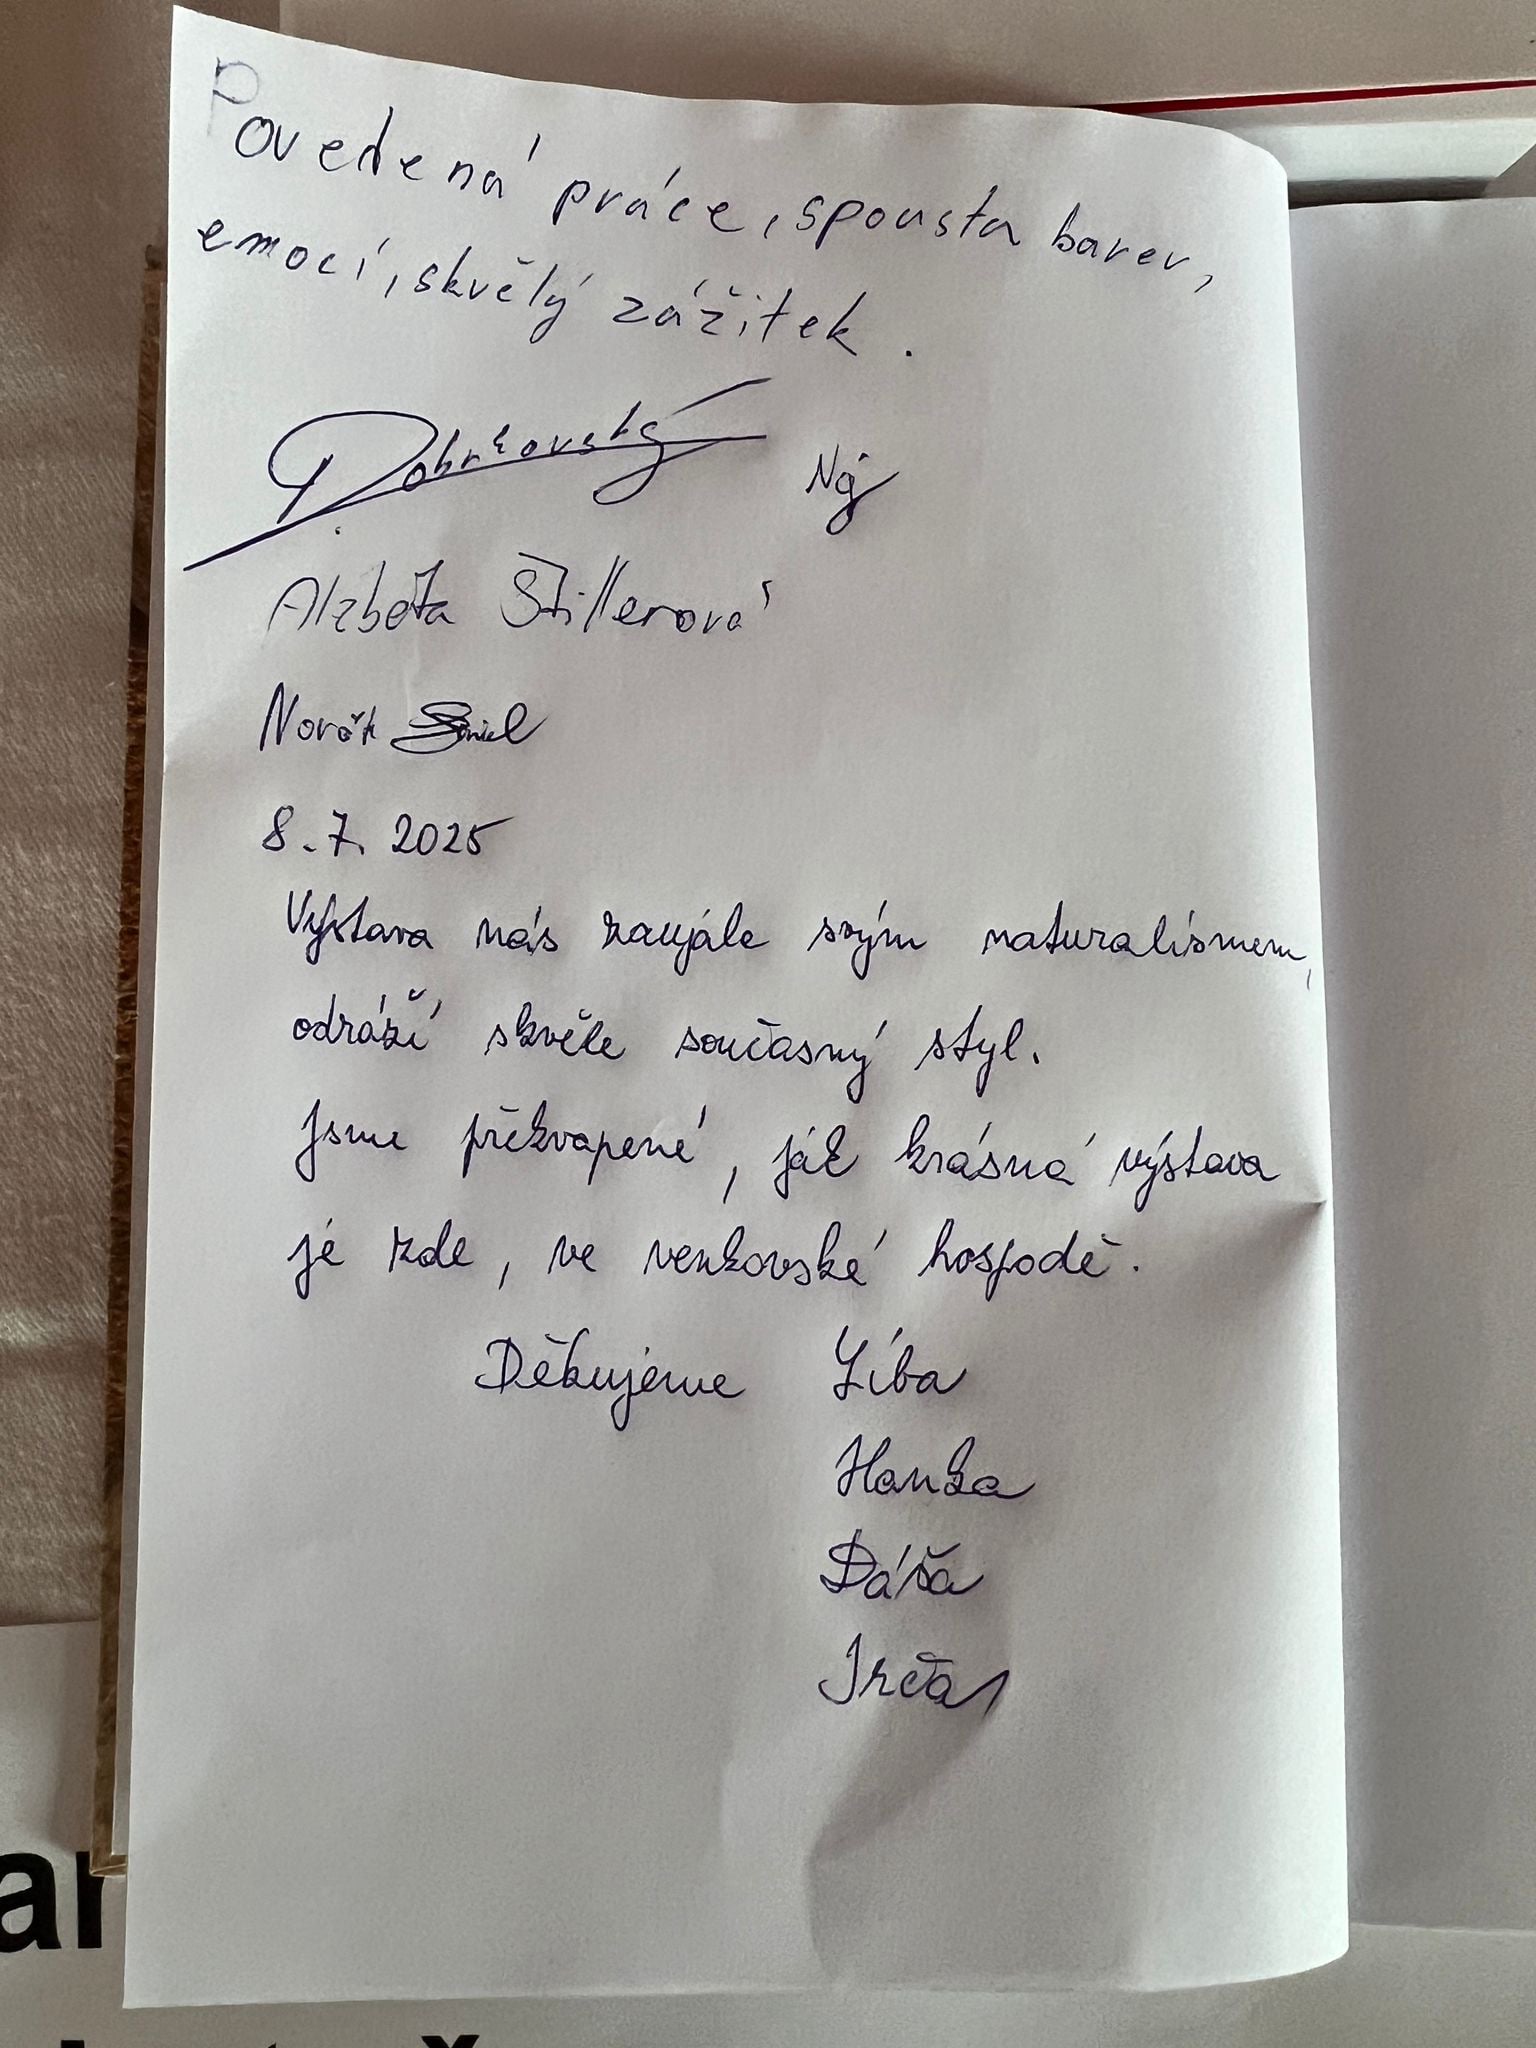 Povedená práce, spousta barev,
emocí, skvělý zážitek.
Alžběta Štillerová
Novák
8.7.2025
Výstava nás zaujále svým naturalismem,
odráží skvěle současný styl.
Jsme překvapené, jak krásná výstava
je zde, ve venkovské hospodě.
Děkujeme Líba
Hanka
Dáša